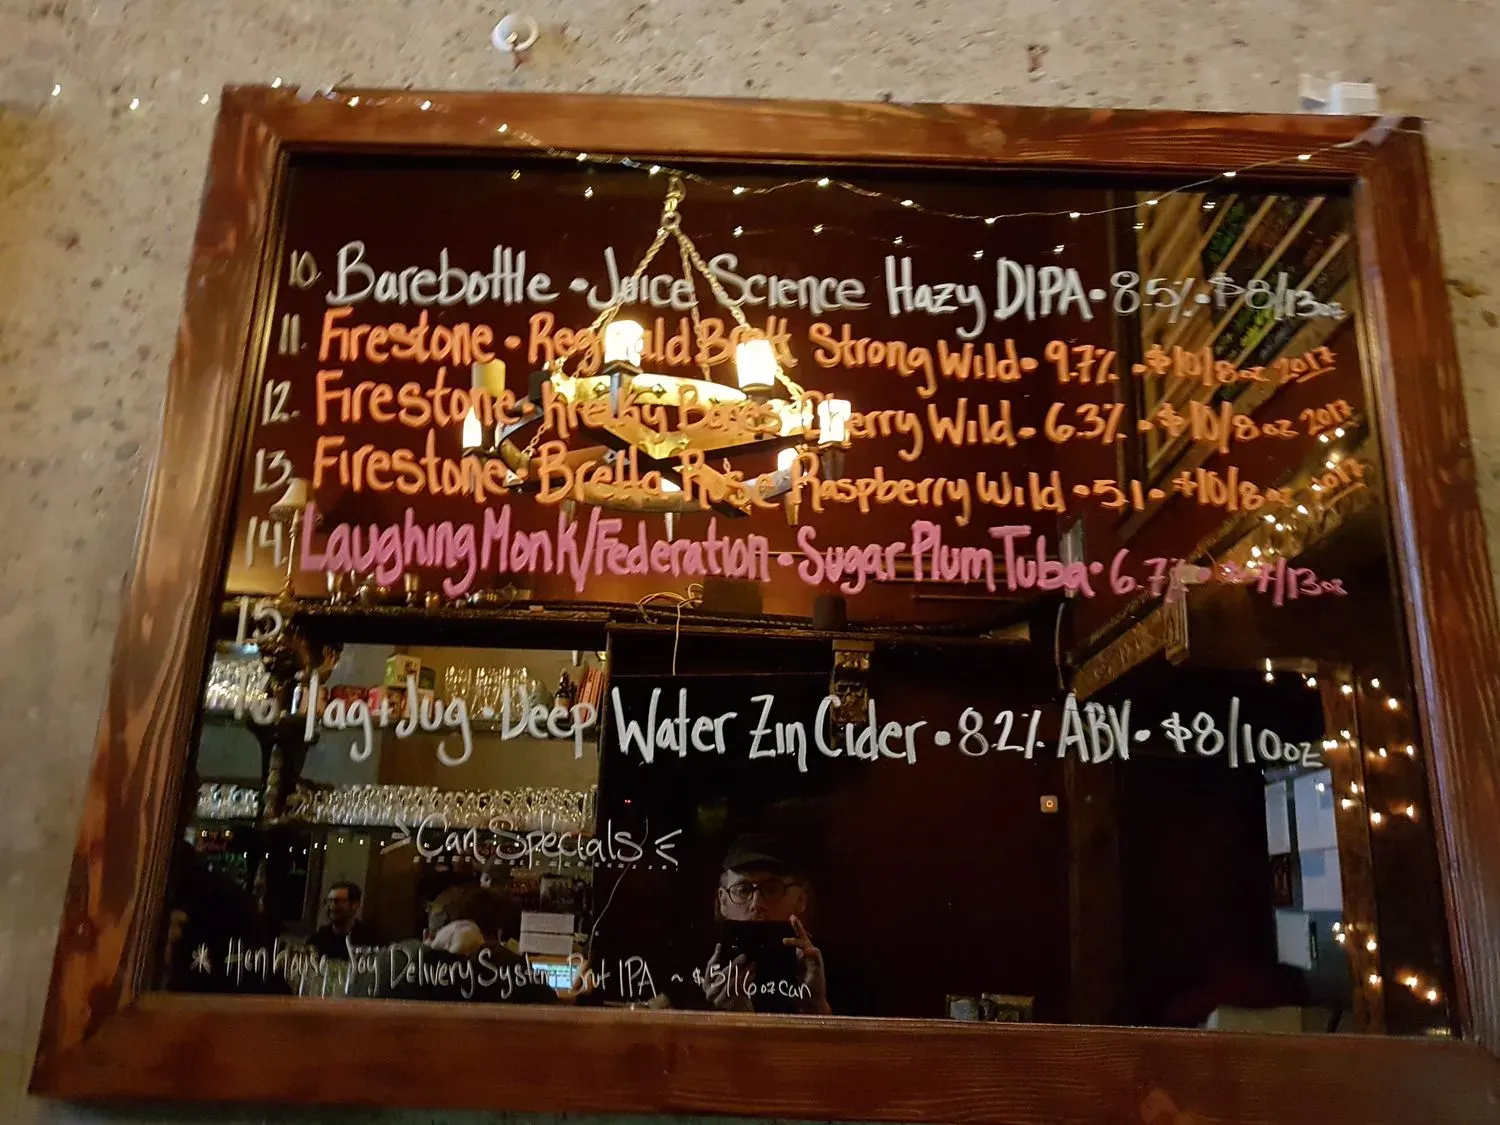 10. Barebottle • Juice Science Hazy DIPA • 8.5% • $8/13oz
11. Firestone • Reginald Brett Strong Wild • 9.7% • $10/8oz 2017
12. Firestone • Bones Cherry Wild • 6.3% • $10/8oz 2017
13. Firestone • Bretta Rose Raspberry Wild • 5.1 • $10/8oz 2017
14. Laughing Monk/Federation • Sugar Plum Tuba • 6.7% • /13oz
15.
16. Tag + Jug • Deep Water Zin Cider • 8.2% ABV • $8/10oz
Can Specials
* Henhouse Joy Delivery System Brut IPA ~ $5/16oz can